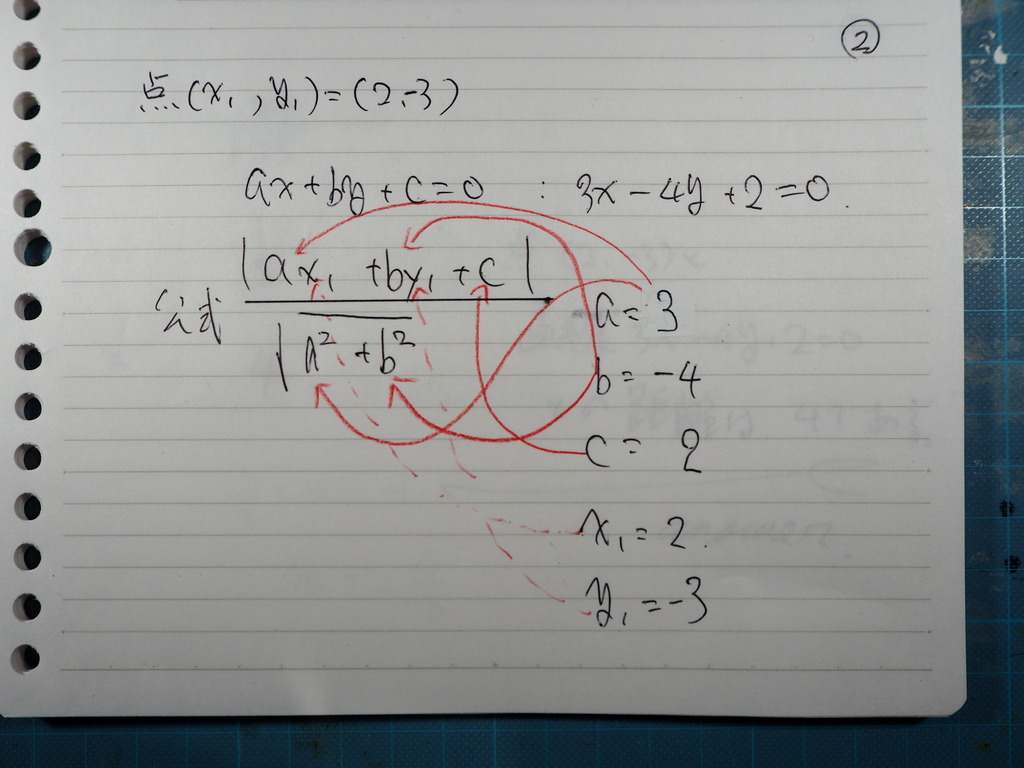 ②
点(x₁, y₁)=(2,-3)
ax+by+c=0 : 3x-4y+2=0.
|ax₁+by₁+c|
公式
√a²+b²
a=3
b=-4
c=2
x₁=2.
y₁=-3